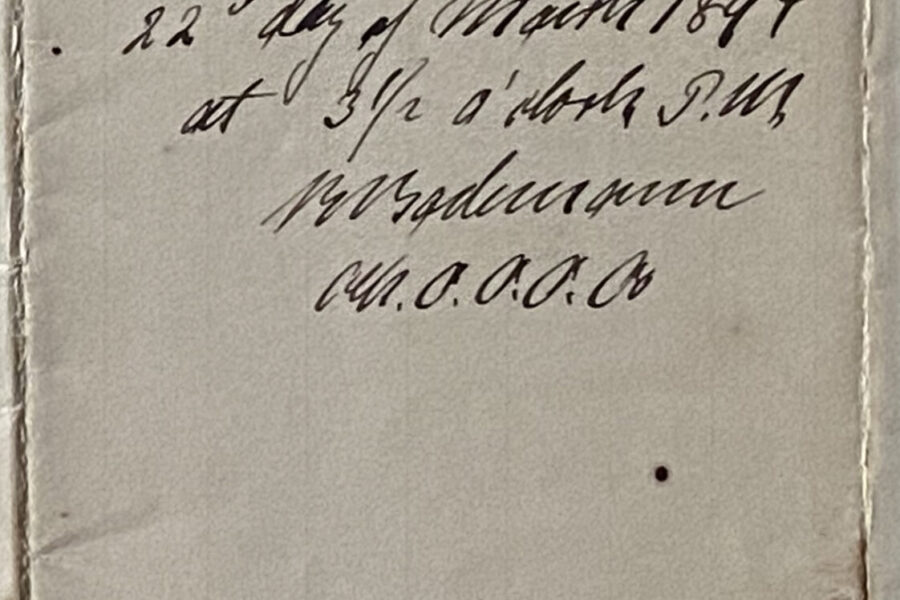 22d day of March 1894
at 3 1/2 o'clock P.M.
B Bademann